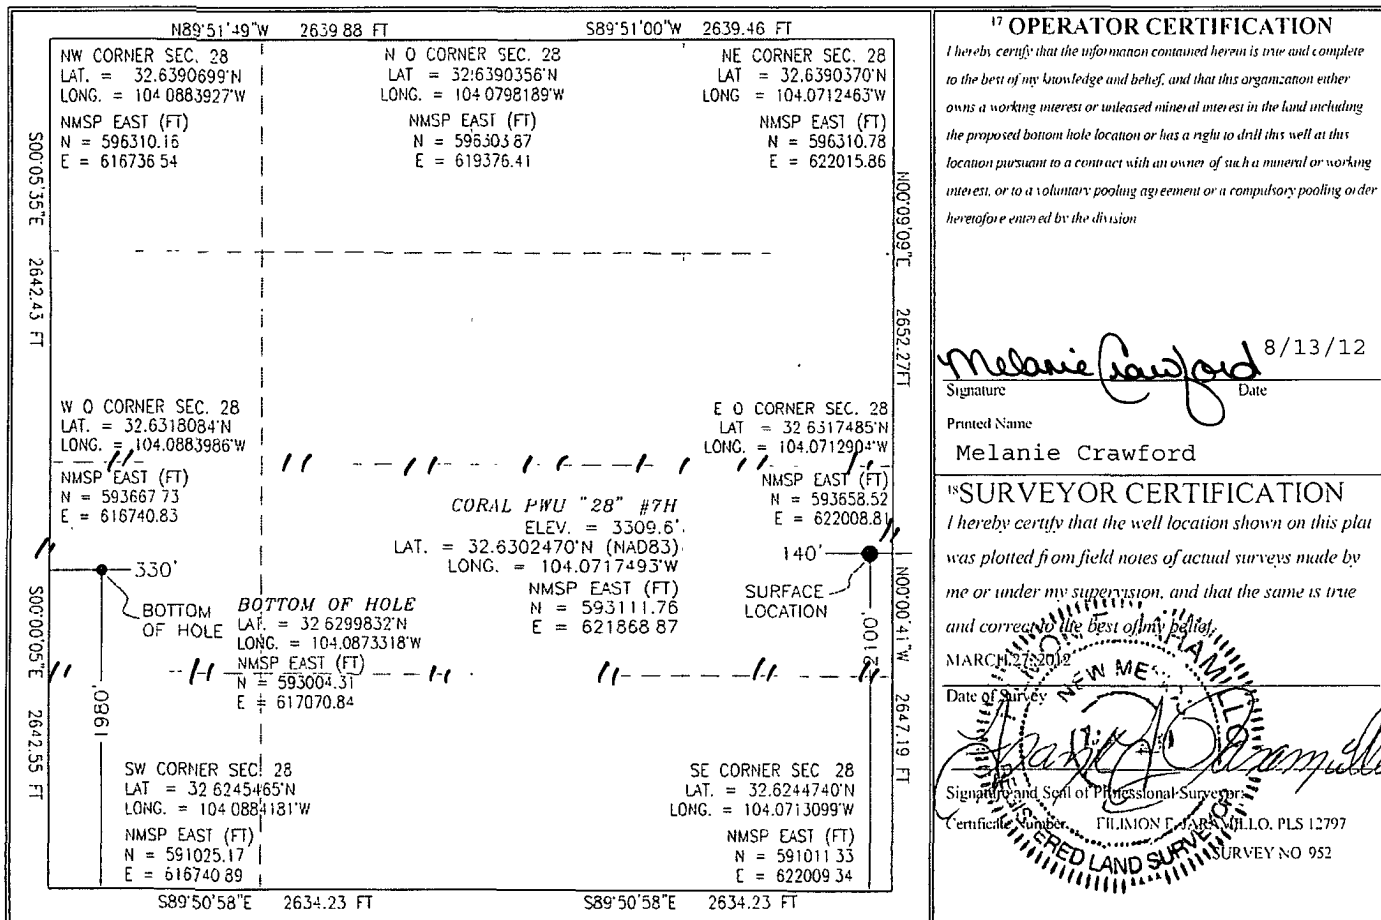 N89°51'49"W 2639 88 FT
S89°51'00"W 2639.46 FT
NW CORNER SEC. 28
LAT. = 32.6390699°N
LONG. = 104 0883927°W
NMSP EAST (FT)
N = 596310.16
E = 616736 54
N Q CORNER SEC. 28
LAT = 32.6390356°N
LONG. = 104 0798189°W
NMSP EAST (FT)
N = 596303 87
E = 619376.41
NE CORNER SEC. 28
LAT = 32.6390370°N
LONG = 104.0712463°W
NMSP EAST (FT)
N = 596310.78
E = 622015.86
S00°05'35"E 2642.43 FT
N00°09'09"E 2652.27FT
W Q CORNER SEC. 28
LAT. = 32.6318084°N
LONG. = 104.0883986°W
NMSP EAST (FT)
N = 593667 73
E = 616740.83
E Q CORNER SEC. 28
LAT = 32 6317485°N
LONG. = 104.0712904°W
NMSP EAST (FT)
N = 593658.52
E = 622008.81
CORAL PWU "28" #7H
ELEV. = 3309.6'
LAT. = 32.6302470°N (NAD83)
LONG. = 104.0717493°W
NMSP EAST (FT)
N = 593111.76
E = 621868 87
140'
SURFACE
LOCATION
2100'
330'
BOTTOM
OF HOLE
1980'
BOTTOM OF HOLE
LAT. = 32 6299832°N
LONG. = 104.0873318°W
NMSP EAST (FT)
N = 593004.31
E = 617070.84
S00°00'05"E 2642.55 FT
N00°00'41"W 2647.19 FT
SW CORNER SEC. 28
LAT = 32 6245465°N
LONG. = 104 0884181°W
NMSP EAST (FT)
N = 591025.17
E = 616740 89
SE CORNER SEC 28
LAT. = 32.6244740°N
LONG. = 104.0713099°W
NMSP EAST (FT)
N = 591011 33
E = 622009 34
S89°50'58"E 2634.23 FT
S89°50'58"E 2634.23 FT
17 OPERATOR CERTIFICATION
I hereby certify that the information contained herein is true and complete
to the best of my knowledge and belief, and that this organization either
owns a working interest or unleased mineral interest in the land including
the proposed bottom hole location or has a right to drill this well at this
location pursuant to a contract with an owner of such a mineral or working
interest, or to a voluntary pooling agreement or a compulsory pooling order
heretofore entered by the division
Melanie Crawford 8/13/12
Signature Date
Printed Name
Melanie Crawford
18 SURVEYOR CERTIFICATION
I hereby certify that the well location shown on this plat
was plotted from field notes of actual surveys made by
me or under my supervision, and that the same is true
and correct to the best of my belief.
MARCH 27, 2012
Date of Survey
Signature and Seal of Professional Surveyor:
Certificate Number FILIMON F. JARAMILLO, PLS 12797
SURVEY NO 952
NEW MEXICO
REGISTERED LAND SURVEYOR